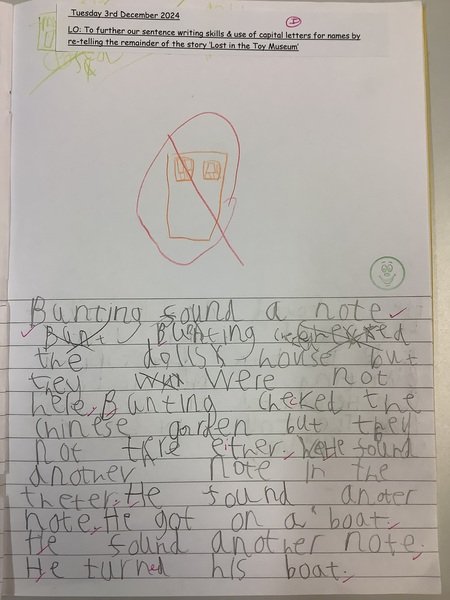 Tuesday 3rd December 2024
LO: To further our sentence writing skills & use of capital letters for names by
re-telling the remainder of the story 'Lost in the Toy Museum'
Bunting found a note.
Bunting checked
the dolls house but
they were not
here. Bunting cheked the
chinese garden but they
not there either. He found
another note in the
theter. He found anoter
note. He got on a boat.
He found another note.
He turned his boat.